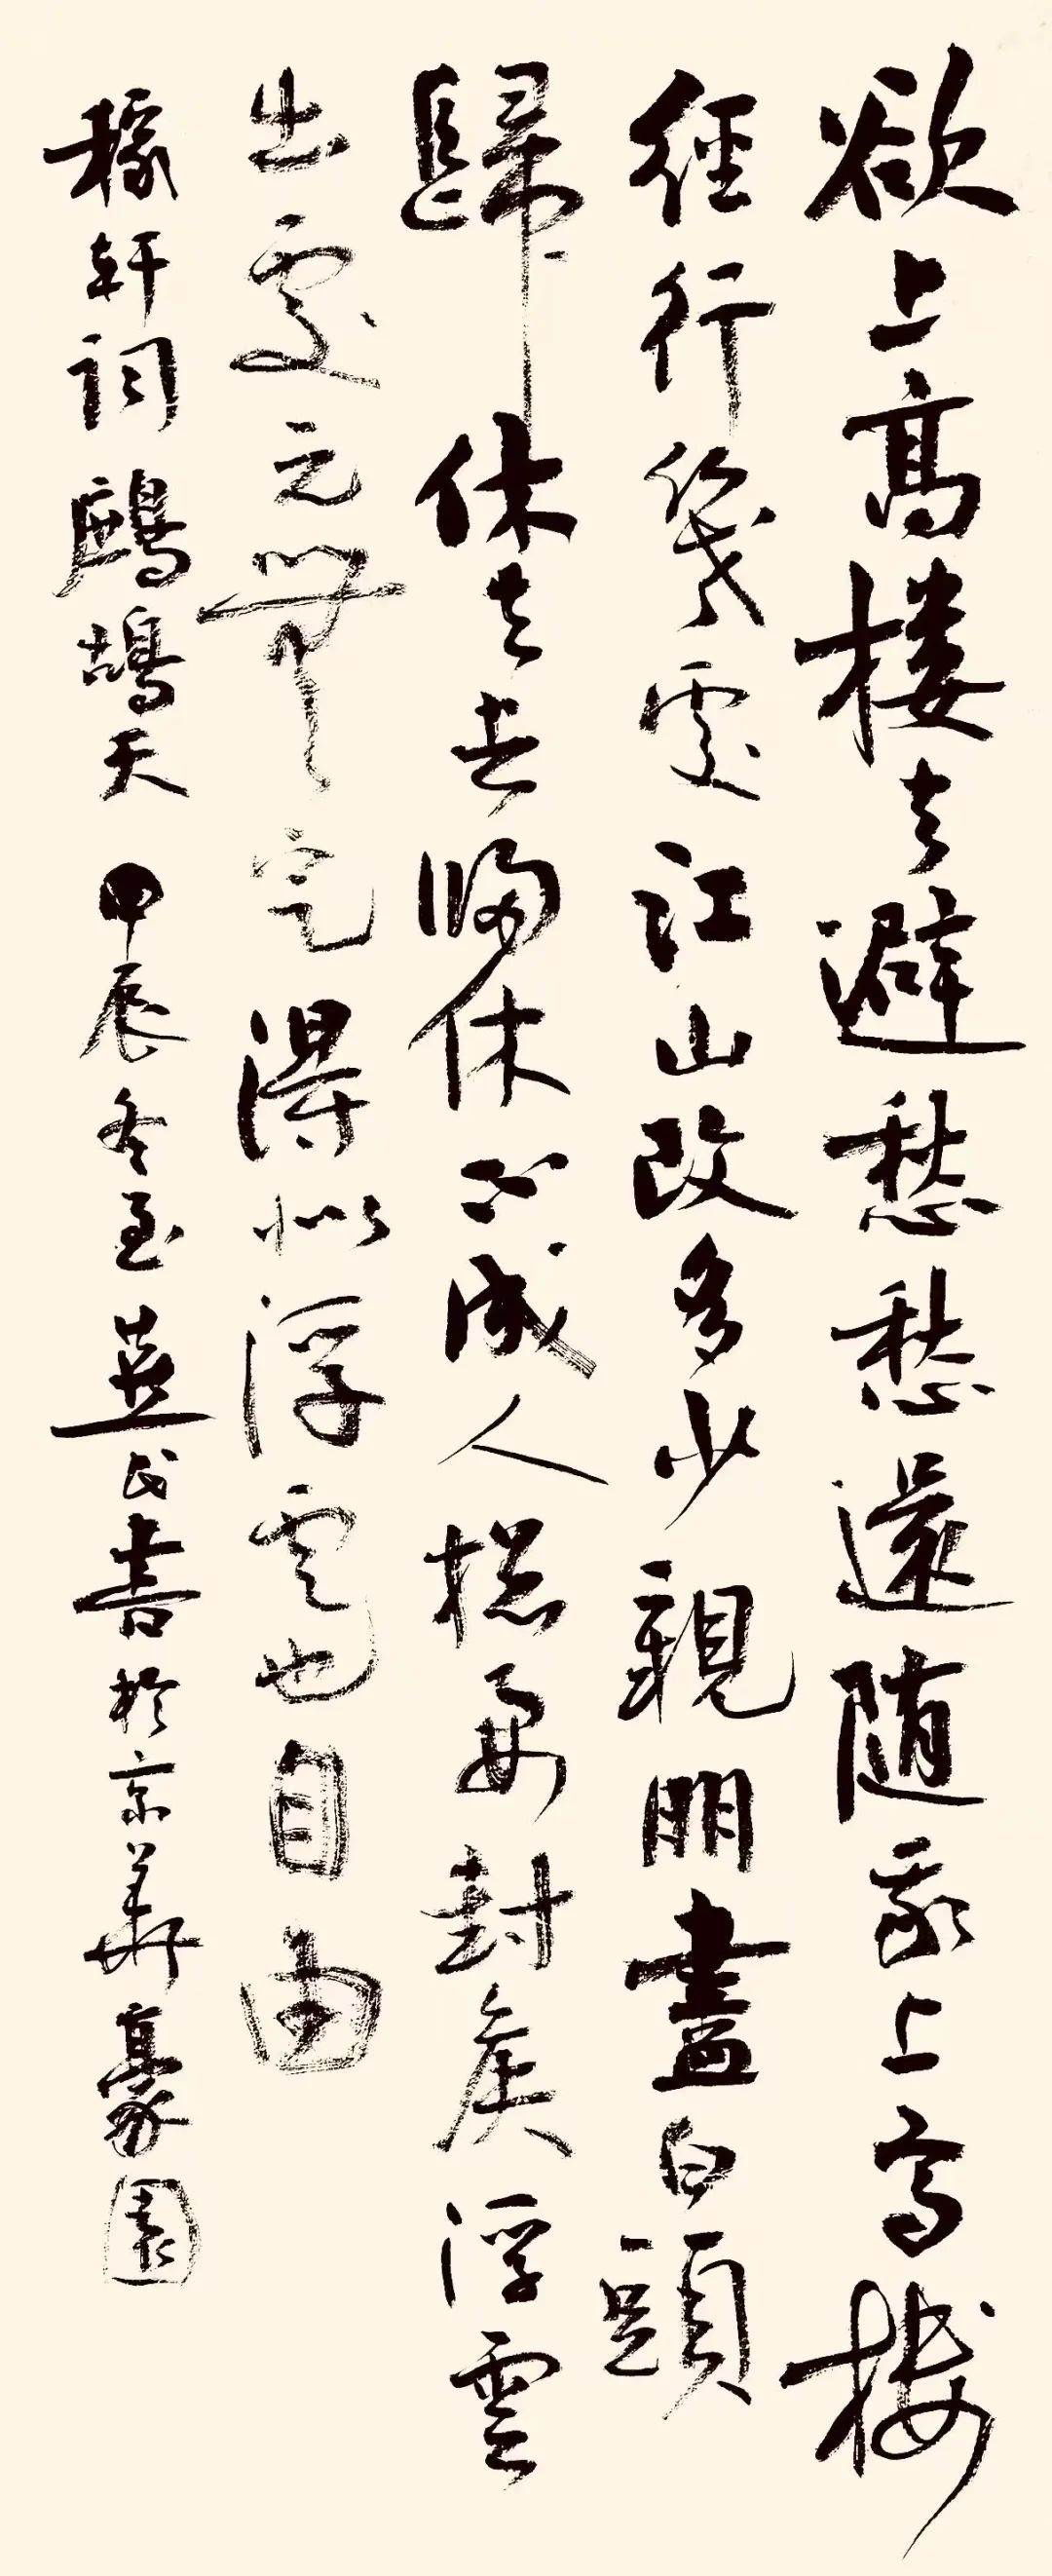 欲上高楼去避愁愁還随我上高楼
經行幾處江山改多少親朋盡白頭
歸休去去歸休不成人總要封侯浮雲
出處元無定得似浮雲也自由
稼軒詞鷓鴣天 甲辰冬至 民書於京華豪園